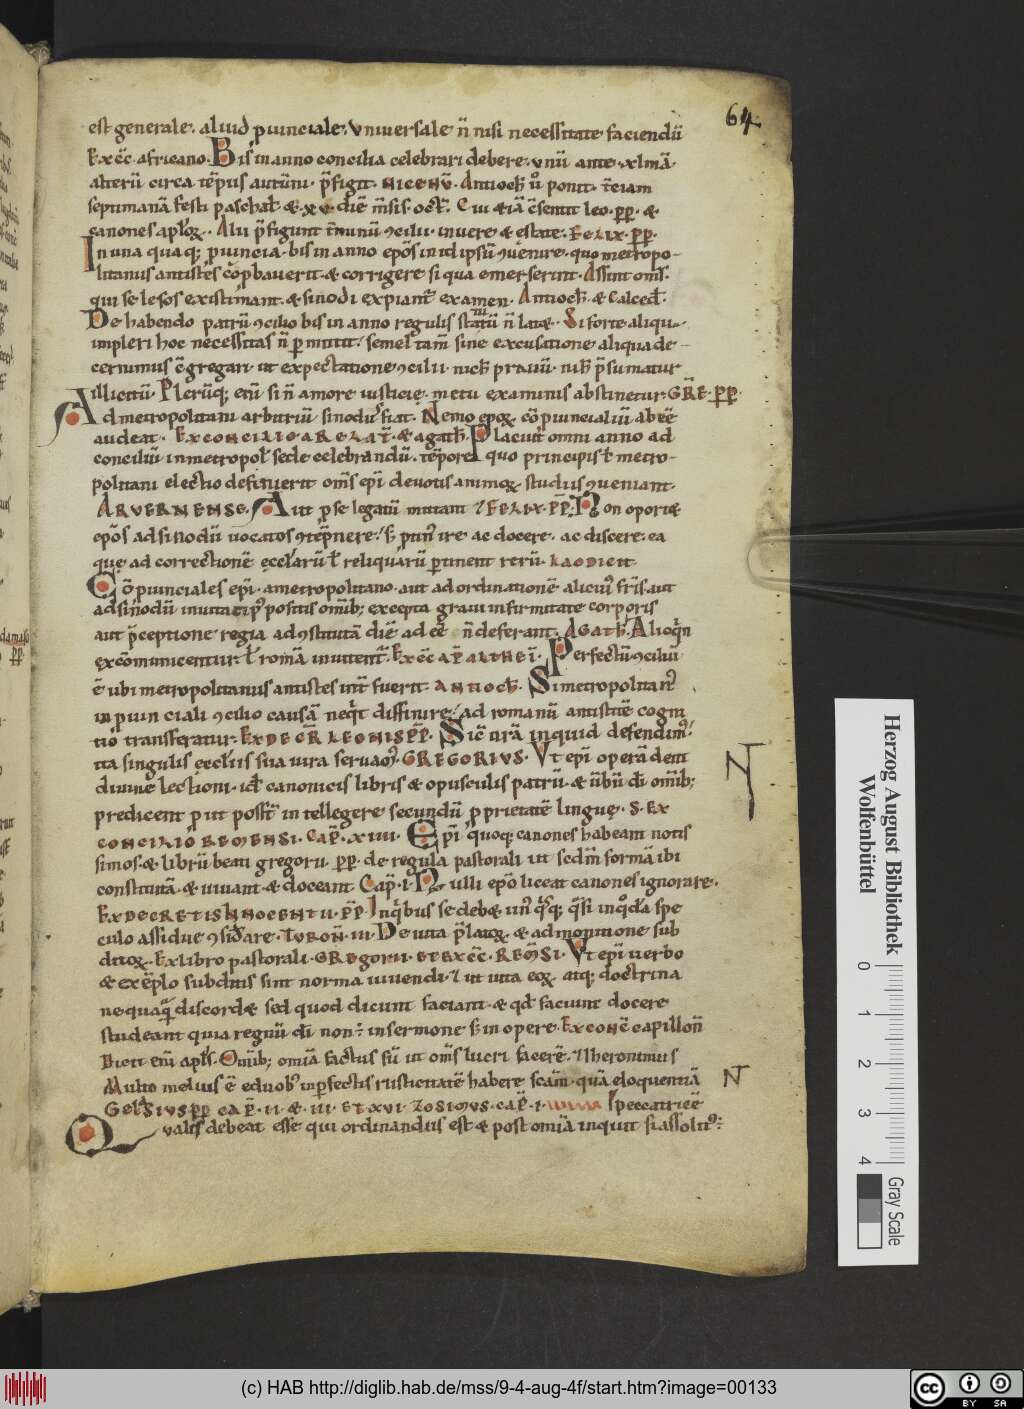 64
est generale. aliud ꝓuinciale. Vniuersale n̄ nisi necessitate faciendū
Exc̄c africano. Bis in anno concilia celebrari debere. vnū ante xlmā.
alterū circa tēpus autūni. p̄figit NICENV̄. Antioch̄ u̓ ponit. t̄ciam
septimanā festi paschal̄ & xv diē m̄sis oct̄. Cui &iā c̄sentit leo. pp̄. &
canones aplōꝝ. Alii p̄figunt t̄minū ꝯcilii inuere & estate. FELIX. pp̄.
In una quaq; ꝓuincia. bis in anno epōs in id ipsū ꝯuenire. quo metropo-
litanus antistes cōpbauerit. & corrigere si qua emerserint. Assint om̄s.
qui se lesos existimant. & sinodi expiant̄ examen. Antioch̄. & Calced̄.
De habendo patrū ꝯcilio bis in anno regulis statutū n̄ latæ. Si forte aliqu
impleri hoc necessitas n̄ ꝑmittit. semel tam̄ sine excusatione aliqua de-
cernimus c̄gregari. ut expectatione ꝯcilii. nich̄ prauū. nich̄ p̄sumatur
illicitū. Plerūq; enī si n̄ amore iusticię. metu examinis abstinetur. GR̄E. PP̄.
Ad metropolitani arbitriū sinodus fiat. Nemo epōꝝ cōꝓuincialiū abeē
audeat. EX CONCILIO ARELAT̄. & agath̄. Placuit omni anno ad
conciliū in metropol̄ sede celebrandū. tēpore quo principis l̄ metro-
politani electio definierit om̄s epī deuotis animoꝝ studiis ꝯueniant.
ARVERNENSE. Aut ꝑ se legatū mittant. FELIX. PP̄. Non oportæ
epōs ad sinodū uocatos ꝯtēpnere. s; ꝓtinus ire ac docere. ac discere. ea
quę ad correctionē ęcclar̄ū l̄ reliquarū ꝑtinent rerū. LAODICIT.
Cōꝓuinciales epī. a metropolitano. aut ad ordinationē alicuius fr̄is. aut
ad sinodū inuitati. postpositis omīb; excepta graui infirmitate corporis
aut p̄ceptione regia ad ꝯstitutā diē ad eē n̄ deferant. AGATH̄. Alioqn̄
ęxcōmunicentur. l̄ romā inuitent̄. Exc̄c AP̄ ALTHEĪ. Perfectū ꝯciliū
ē ubi metropolitanus antistes int̄fuerit. ANTIOCH̄. Si metropolitanus
in ꝓuinciali ꝯcilio causā neqt diffinire. ad romanū antistitē cogni
tio transferatur. EX DECR̄ LEONIS PP̄. Sic n̄rā inquid defendimus.
ita singulis ęccliis sua iura seruamus. GREGORIVS. Vt epī operā dent
diuinę lectioni. id̄ canonicis libris & opusculis patrū. & ūbū dī omīb;
predicent ꝓut poss̄t intellegere secundū ꝓprietatē linguę. S. EX
CONCILIO REMENSI. CAP̄. XIIII. Epī quoq; canones habeant notis
simos. & librū beati gregorii pp̄. de regula pastorali ut scdm̄ formā ibi
constitutā. & uiuant & doceant Cap̄. I. Nulli epō liceat canones ignorare.
EX DECRETIS INNOCENTII. PP̄. In quibus se debeæ unusqsq; qsi inqodā spe
culo assidue ꝯsiderare. TVRON̄. III. De uita p̄latoꝝ. & admonitione sub
ditoꝝ. EX libro pastorali. GREgorii. ET EXC̄C. REM̄SI. Vt epī uerbo
& exēplo subditis sint norma uiuendi. ut uita eoꝝ. atq; doctrina
nequaquā discordæ sed quod dicunt faciant. & qd̄ faciunt docere
studeant quia regnū dī non in sermone s; in opere. Ex conc̄ capillon̄
Dicit enī apl̄s. Omīb; omīa factus sū ut om̄s lucri facerē. Iheronimus
Multo melius ē eduobus inꝑfectis rusticitatē habere scām. quā eloquentiā
GELASIVS PP̄. CAP̄. II. & III. ET XVI. ZOSIMVS. CAP̄. I. peccatricē
Qualis debeat esse qui ordinandus est & post omīa inquit si assolitus
N
N
damasꝰ
pp̄
Herzog August Bibliothek
Wolfenbüttel
0 1 2 3 4
Gray Scale
(c) HAB http://diglib.hab.de/mss/9-4-aug-4f/start.htm?image=00133
cc BY SA